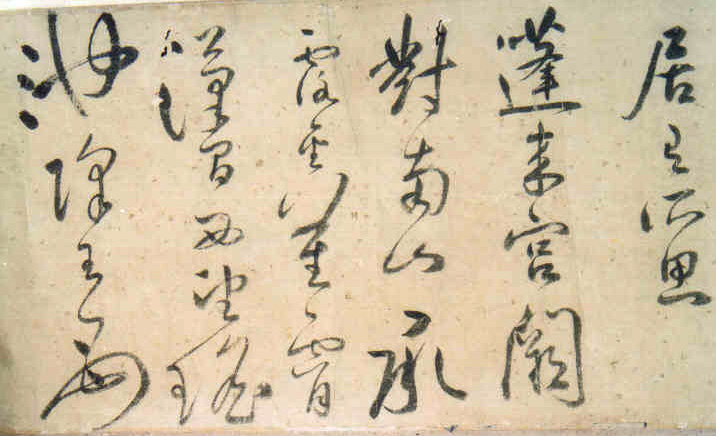 居有所思
蓬来宮闕
對南山承
露金莖霄
漢間西望瑤
池降王母